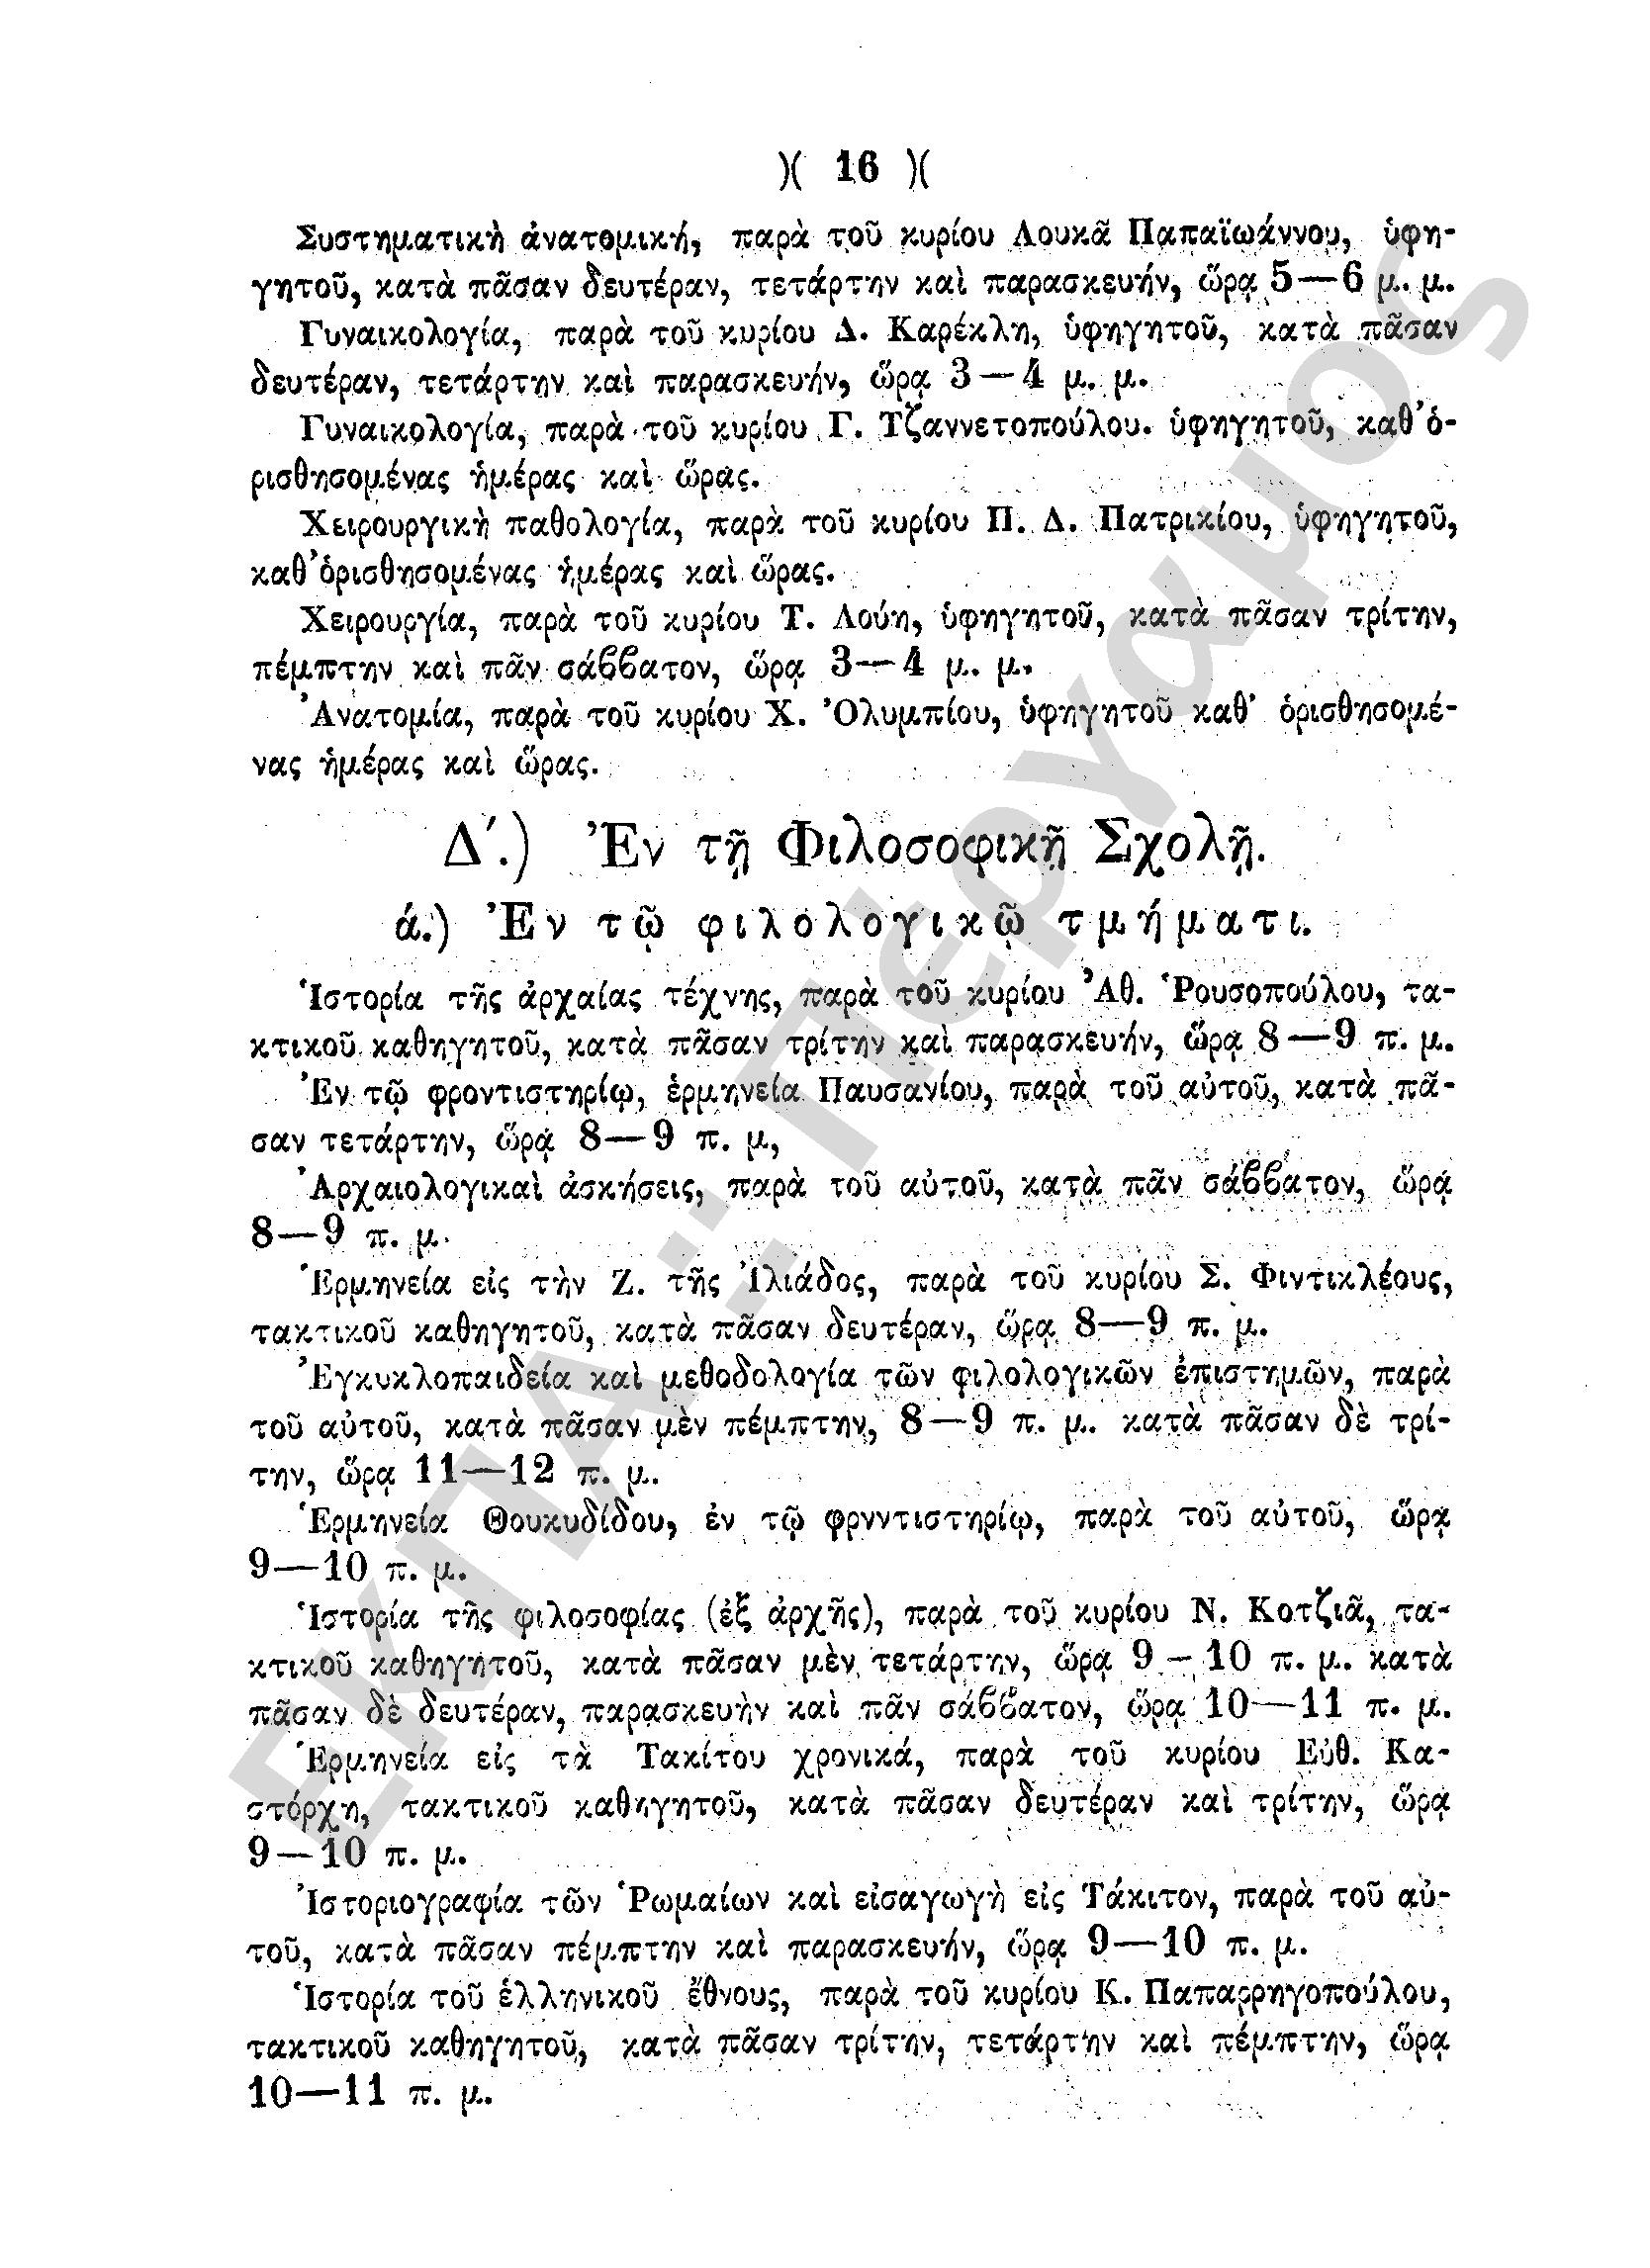 )( 16 )(
Συστηματικὴ ἀνατομική, παρὰ τοῦ κυρίου Λουκᾶ Παπαϊωάννου, ὑφη-
γητοῦ, κατὰ πᾶσαν δευτέραν, τετάρτην καὶ παρασκευήν, ὥρᾳ 5—6 μ. μ.
Γυναικολογία, παρὰ τοῦ κυρίου Δ. Καρέκλη, ὑφηγητοῦ, κατὰ πᾶσαν
δευτέραν, τετάρτην καὶ παρασκευήν, ὥρᾳ 3—4 μ. μ.
Γυναικολογία, παρὰ τοῦ κυρίου Γ. Τζαννετοπούλου. ὑφηγητοῦ, καθ’ὁ-
ρισθησομένας ἡμέρας καὶ ὥρας.
Χειρουργικὴ παθολογία, παρὰ τοῦ κυρίου Π. Δ. Πατρικίου, ὑφηγητοῦ,
καθ’ὁρισθησομένας ἡμέρας καὶ ὥρας.
Χειρουργία, παρὰ τοῦ κυρίου Τ. Λούη, ὑφηγητοῦ, κατὰ πᾶσαν τρίτην,
πέμπτην καὶ πᾶν σάββατον, ὥρᾳ 3—4 μ. μ.
Ἀνατομία, παρὰ τοῦ κυρίου Χ. Ὀλυμπίου, ὑφηγητοῦ καθ’ ὁρισθησομέ-
νας ἡμέρας καὶ ὥρας.
Δ΄.) Ἐν τῇ Φιλοσοφικῇ Σχολῇ.
ά.) Ἐν τῷ φιλολογικῷ τμήματι.
Ἱστορία τῆς ἀρχαίας τέχνης, παρὰ τοῦ κυρίου Ἀθ. Ῥουσοπούλου, τα-
κτικοῦ καθηγητοῦ, κατὰ πᾶσαν τρίτην καὶ παρασκευήν, ὥρᾳ 8—9 π. μ.
Ἐν τῷ φροντιστηρίῳ, ἑρμηνεία Παυσανίου, παρὰ τοῦ αὐτοῦ, κατὰ πᾶ-
σαν τετάρτην, ὥρᾳ 8—9 π. μ,
Ἀρχαιολογικαὶ ἀσκήσεις, παρὰ τοῦ αὐτοῦ, κατὰ πᾶν σάββατον, ὥρᾳ
8—9 π. μ.
Ἑρμηνεία εἰς τὴν Ζ. τῆς Ἰλιάδος, παρὰ τοῦ κυρίου Σ. Φιντικλέους,
τακτικοῦ καθηγητοῦ, κατὰ πᾶσαν δευτέραν, ὥρᾳ 8—9 π. μ.
Ἐγκυκλοπαιδεία καὶ μεθοδολογία τῶν φιλολογικῶν ἐπιστημῶν, παρὰ
τοῦ αὐτοῦ, κατὰ πᾶσαν μὲν πέμπτην, 8—9 π. μ. κατὰ πᾶσαν δὲ τρί-
την, ὥρᾳ 11—12 π. μ.
Ἑρμηνεία Θουκυδίδου, ἐν τῷ φρνντιστηρίῳ, παρὰ τοῦ αὐτοῦ, ὥρᾳ
9—10 π. μ.
Ἱστορία τῆς φιλοσοφίας (ἐξ ἀρχῆς), παρὰ τοῦ κυρίου Ν. Κοτζιᾶ, τα-
κτικοῦ καθηγητοῦ, κατὰ πᾶσαν μὲν τετάρτην, ὥρᾳ 9—10 π. μ. κατὰ
πᾶσαν δὲ δευτέραν, παρασκευὴν καὶ πᾶν σάββατον, ὥρᾳ 10—11 π. μ.
Ἑρμηνεία εἰς τὰ Τακίτου χρονικά, παρὰ τοῦ κυρίου Εὐθ. Κα-
στόρχη, τακτικοῦ καθηγητοῦ, κατὰ πᾶσαν δευτέραν καὶ τρίτην, ὥρᾳ
9—10 π. μ.
Ἱστοριογραφία τῶν Ῥωμαίων καὶ εἰσαγωγὴ εἰς Τάκιτον, παρὰ τοῦ αὐ-
τοῦ, κατὰ πᾶσαν πέμπτην καὶ παρασκευήν, ὥρᾳ 9—10 π. μ.
Ἱστορία τοῦ ἑλληνικοῦ ἔθνους, παρὰ τοῦ κυρίου Κ. Παπαρρηγοπούλου,
τακτικοῦ καθηγητοῦ, κατὰ πᾶσαν τρίτην, τετάρτην καὶ πέμπτην, ὥρᾳ
10—11 π. μ.
ΕΚΠΑ :: Πέργαμος